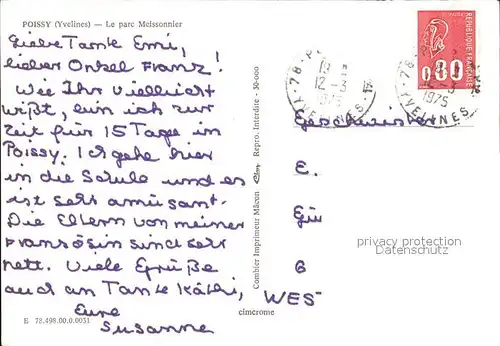 POISSY (Yvelines) — Le parc Meissonnier
Liebe Tante Emi,
lieber Onkel Franz!
Wie Ihr vielleicht
wißt, bin ich zur
Zeit für 15 Tage in
Poissy. Ich gehe hier
in die Schule und es
ist sehr amüsant.
Die Eltern von meiner
Französin sind sehr
nett. Viele Grüße
auch an Tante Käthi,
Eure
Susanne
E 78.498.00.0.0051
Combier Imprimeur Mâcon
Repro. Interdite - 30-000
cimcrome
REPUBLIQUE FRANÇAISE
0.80
78
12-3
1975
YVELINES
Geschwister
E.
G
WES
privacy protection
Datenschutz